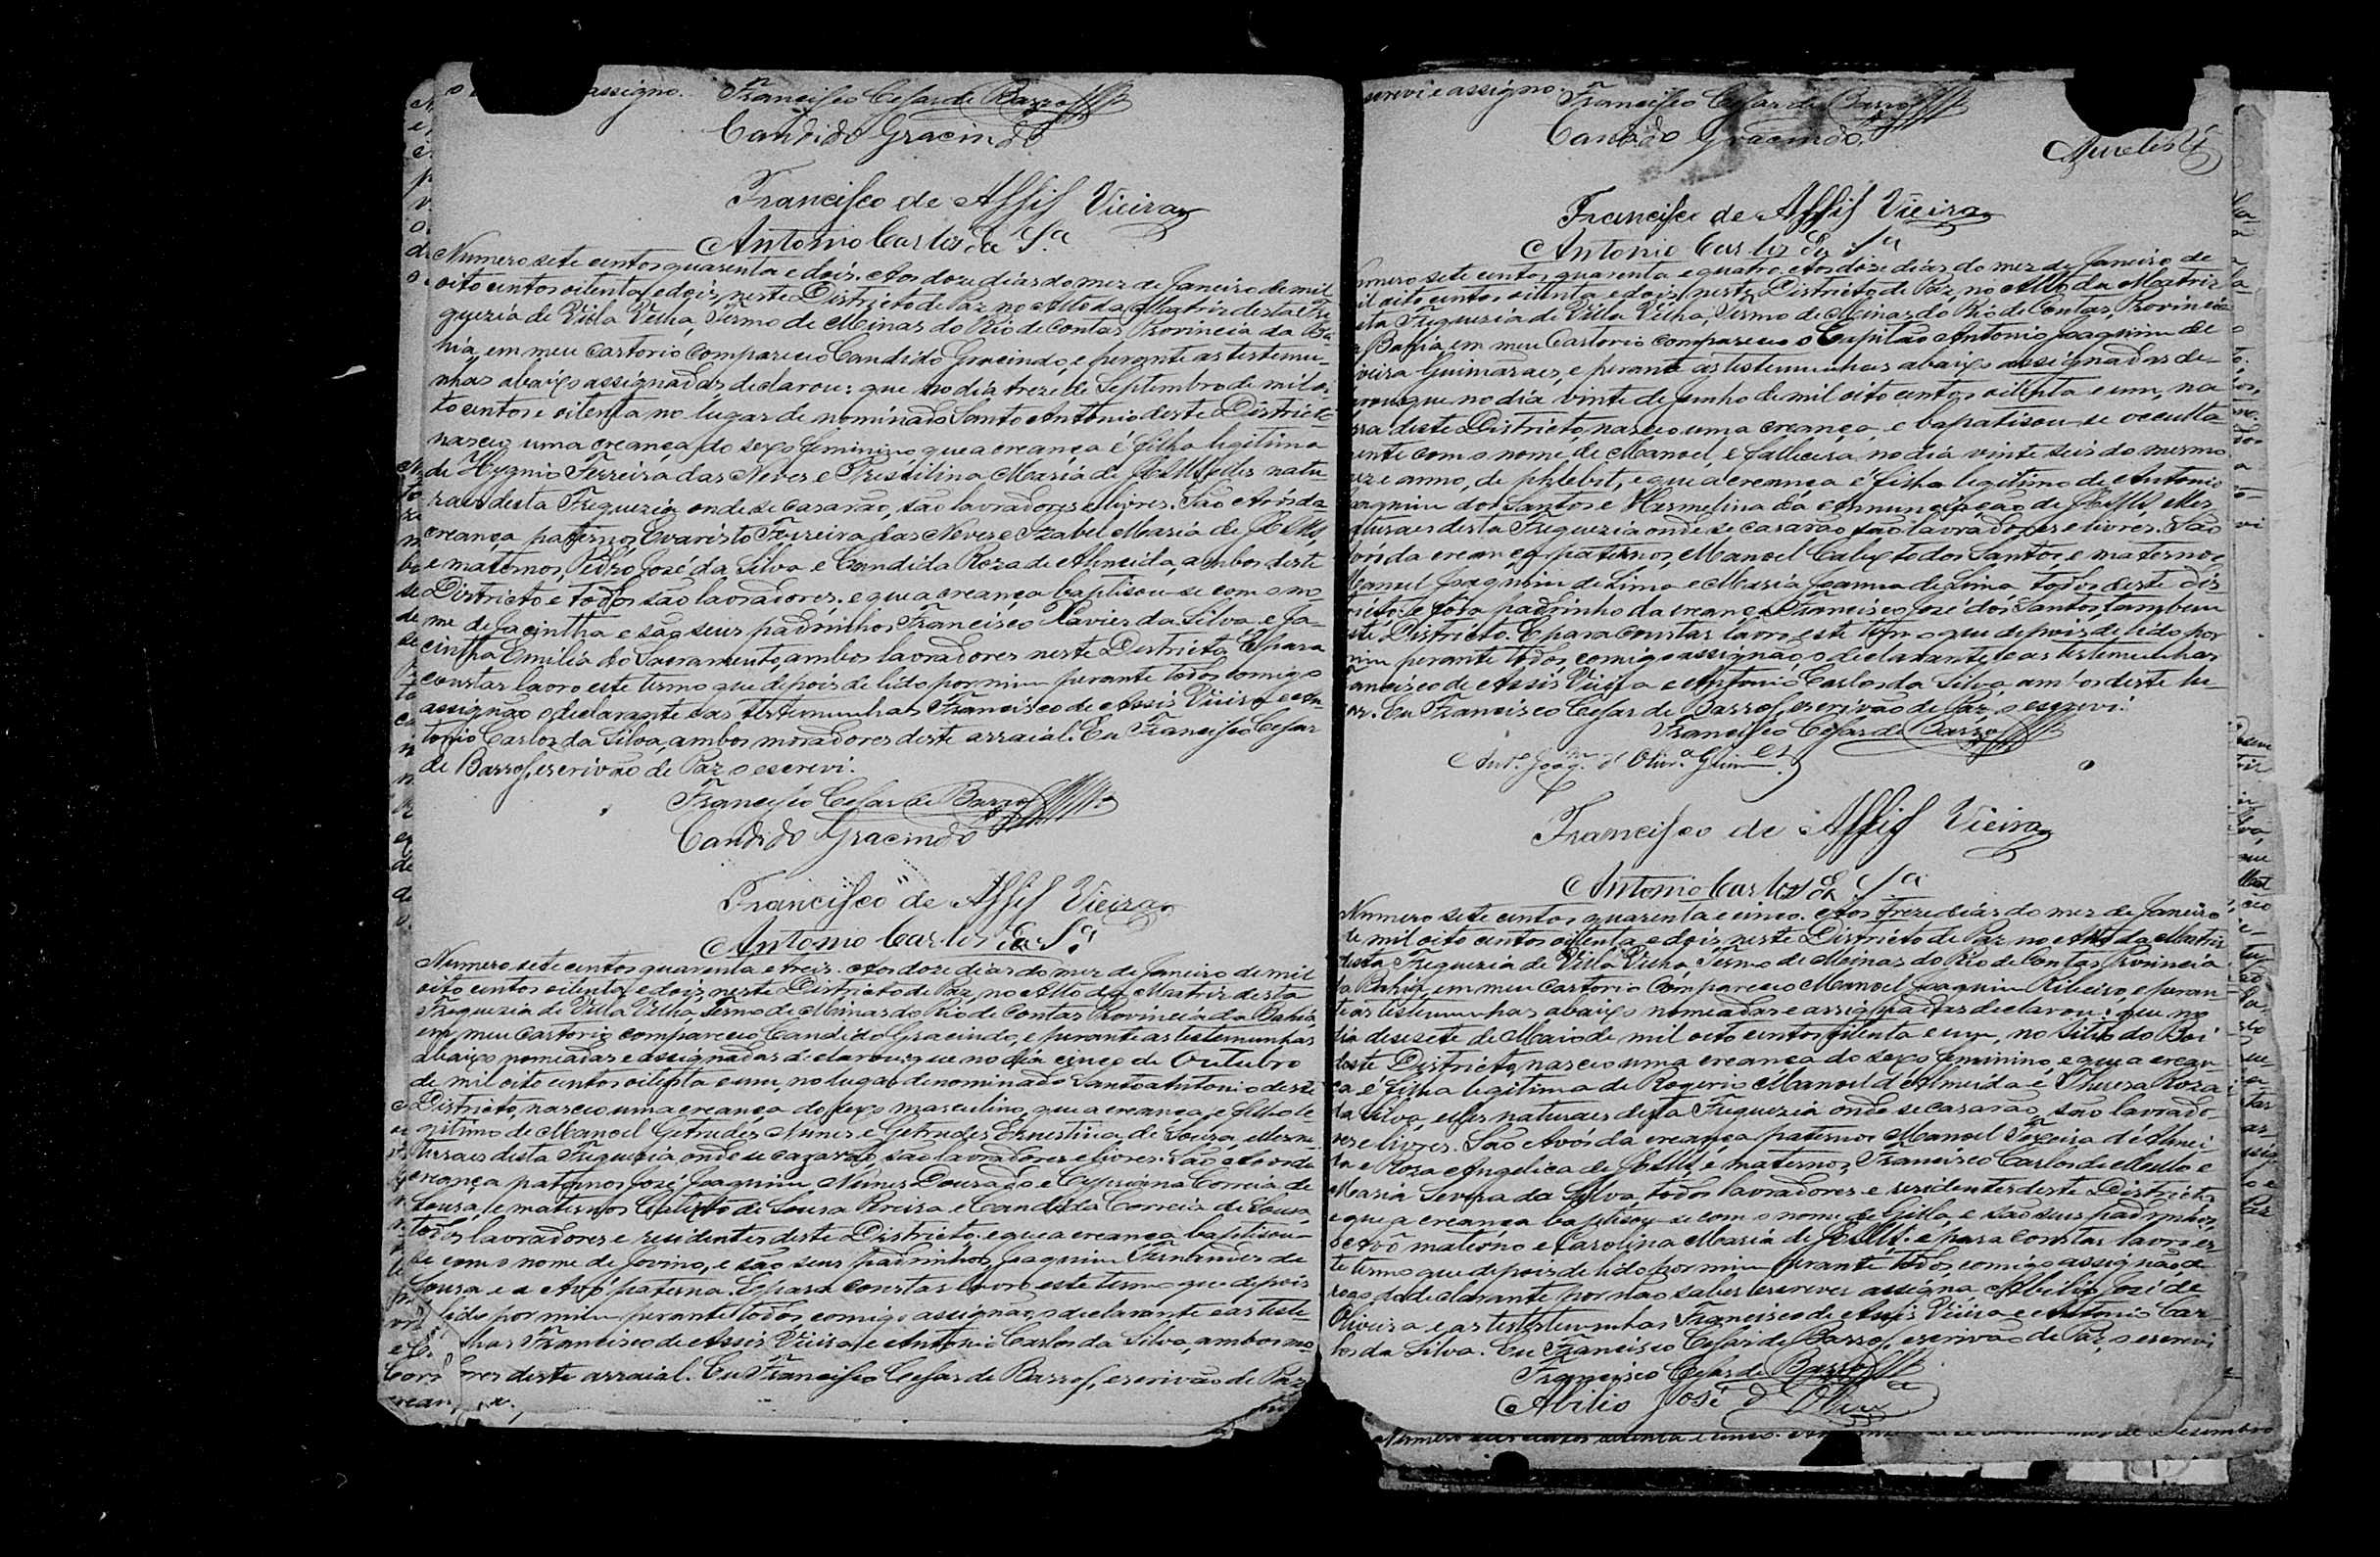 assigno. Francisco Cesar de Barros
Candido Gracindo
Francisco de Assis Vieira
Antonio Carlos da Sª
Numero sete centos quarenta e dois. Aos doze dias do mez de Janeiro de mil
oito centos oitenta e dois, neste Districto de Paz, no Alto da Matriz desta Fre-
guezia de Villa Velha, Termo de Minas do Rio de Contas, Provincia da Ba-
hia, em meu Cartorio compareceu Candido Gracindo, e perante as testemu-
nhas abaixo assignadas, declarou: que no dia treze de Septembro de mil oi-
to centos e oitenta no lugar denominado Santo Antonio deste Districto
nasceu uma creança do sexo feminino, que a creança é filha legitima
de Hygino Ferreira das Neves e Maria de Jesus, elles natu-
raes desta Freguezia onde se casarão, são lavradores e livres. São Avós da
creança paternos, Evaristo Ferreira das Neves e Izabel Maria de Jesus
e maternos, Pedro José da Silva e Candida Roza de Almeida, ambos deste
Districto e todos são lavradores, e que a creança baptisou-se com o no-
me de Jacintha e são seus padrinhos Francisco Xavier da Silva e Ja-
cintha Emilia do Sacramento, ambos lavradores neste Districto. E para
constar lavro este termo que depois de lido por mim perante todos comigo
assignão o declarante e as testemunhas Francisco de Assis Vieira e An-
tonio Carlos da Silva, ambos moradores deste arraial. Eu Francisco Cesar
de Barros, escrivão de Paz o escrevi.
Francisco Cesar de Barros
Candido Gracindo
Francisco de Assis Vieira
Antonio Carlos da Sª
Numero sete centos quarenta e treis. Aos doze dias do mez de Janeiro de mil
oito centos oitenta e dois, neste Districto de Paz, no Alto da Matriz desta
Freguezia de Villa Velha, Termo de Minas do Rio de Contas Provincia da Bahia,
em meu Cartorio compareceu Candido Gracindo, e perante as testemunhas
abaixo nomeadas e assignadas declarou: que no dia cinco de Outubro
de mil oito centos oitenta e um, no lugar denominado Santo Antonio deste
Districto, nasceu uma creança do sexo masculino, que a creança, é filho le-
gitimo de Manoel Getrudes Nunes e Getrudes Ernestina de Sousa,
turaes desta Freguezia, onde se cazarão, são lavradores e livres. São Avós da
creança paternos José Joaquim Nunes Dourado e Cypriana Correia de
Sousa, e maternos Calixto de Sousa Pereira e Candida Correia de Sousa,
todos lavradores e residentes deste Districto e que a creança baptisou-
se com o nome de Jovino, e são seus padrinhos, Joaquim Fernandes de
Sousa e a Avó paterna. E para constar lavro este termo que depois
lido por mim perante todos comigo assignão, o declarante e as teste-
nhas Francisco de Assis Vieira e Antonio Carlos da Silva, ambos mo-
ores deste arraial. Eu Francisco Cesar de Barros, escrivão de Paz
screvi e assigno. Francisco Cesar de Barros
Candido Gracindo
Francisco de Assis Vieira
Antonio Carlos da Sª
umero sete centos quarenta e quatro. Aos doze dias do mez de Janeiro de
il oito centos oitenta e dois, neste Districto de Paz, no Alto da Matriz
sta Freguezia de Villa Velha, Termo de Minas do Rio de Contas, Provincia
a Bahia, em meu Cartorio compareceu o Capitão Antonio Joaquim de
liveira Guimarães, e perante as testemunhas abaixo assignadas de-
arou: que no dia vinte de Junho de mil oito centos oitenta e um, na
deste Districto, nasceu uma creança, e bapatisou-se occulta-
ente com o nome de Manoel, e fallecera no dia vinte seis do mesmo
ez e anno, de phlebit, e que a creança é filha legitimo de Antonio
oaquim dos Santos e Hermelina da Annuncipeção de Jesus, elles
aturaes desta Freguezia onde se casarão são lavradores e livres. São
vós da creança paternos, Manoel Calixto dos Santos, e maternos
Manuel Joaquim de Lima e Maria Joanna de Lima, todos deste dis-
tricto, e fora padrinho da creança Francisco José dos Santos, tambem
ste Districto. E para constar lavro este termo que depois de lido por
mim perante todos, comigo assignão, o declarante, e as testemunhas
rancisco de Assis Vieira e Antonio Carlos da Silva, ambos deste lu-
ar. Eu Francisco Cesar de Barros, escrivão de Paz, o escrevi.
Francisco Cesar de Barros
Antº Joaqm d'Olivrª Guimes
Francisco de Assis Vieira
Antonio Carlos da Sª
Numero sete centos quarenta e cinco. Aos treze dias do mez de Janeiro
de mil oito centos oitenta e dois, neste Districto de Paz, no Alto da Matriz
desta Freguezia de Villa Velha, Termo de Minas do Rio de Contas, Provincia
da Bahia, em meu Cartorio compareceu Manoel Joaquim Ribeiro, e peran-
te as testemunhas abaixo nomeadas e assignadas declarou: que no
dia desesete de Maio de mil oito centos oitenta e um, no Sitio do Boi
deste Districto, nasceu uma creança do sexo feminino, e que a crean-
ça é filha legitima de Rogerio Manoel d'Almeida e Thereza Roza
da Silva, elles naturaes desta Freguezia onde se casarão, são lavrado-
res e livres. São Avós da creança, paternos Manoel Teixeira d'Almei-
da e Roza Angelica de Jesus, e maternos, Francisco Carlos de Mello e
Maria Severa da Silva, todos lavradores e residentes deste Districto,
e que a creança baptisou-se com o nome de e são seus padrinhos,
o Avô materno e Carolina Maria de Jesus. E para constar lavro es-
te termo que depois de lido por mim perante todos, comigo assignão, a
rogo do declarante por não saber escrever assigna Abilio José de
Oliveira e as testemunhas Francisco de Assis Vieira e Antonio Car-
los da Silva. Eu Francisco Cesar de Barros, escrivão de Paz, o escrevi
Francisco Cesar de Barros
Abilio José d'Olivrª